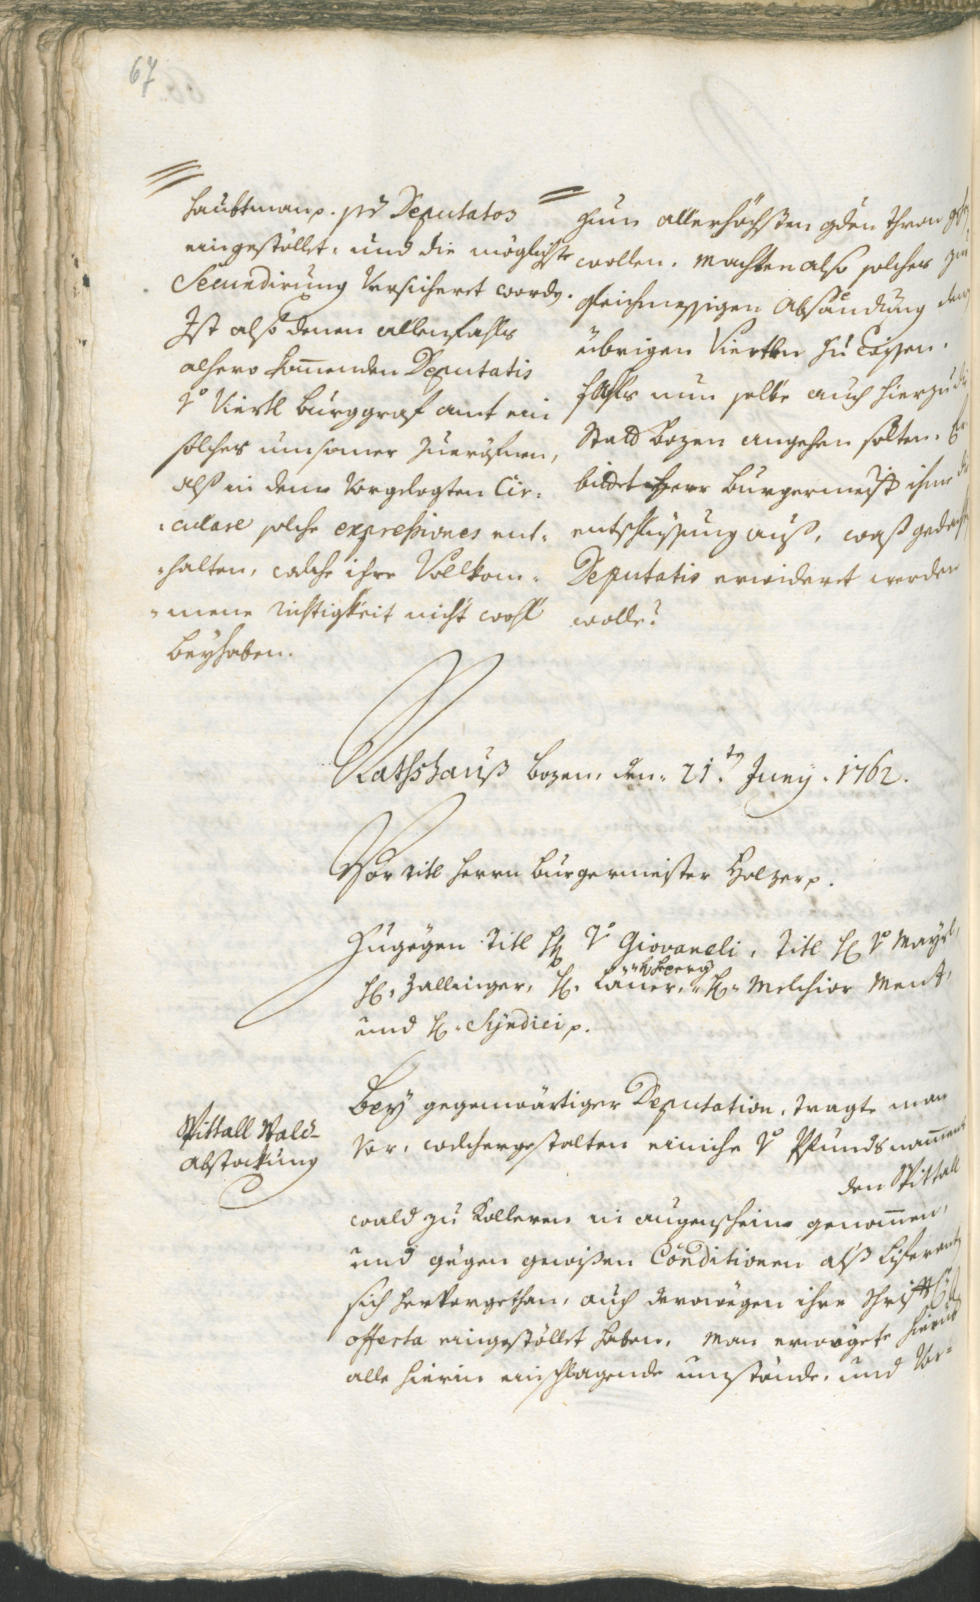 67
haubtman p. pr Deputatos
eingestöllet, und die möglichste
Secundirung versicheret word.
Ist also denen allenfahls
alhero komenden Deputatis
Viertl Burggraf amt ein
solches umsomer zueröfnen,
alß in deme vorgelegten Cir-
culare solche expressiones ent-
halten, welche ihre Vollkom-
mene richtigkeit nicht wohl
beyhaben.
zum allerhöchsten gden Thron
wollen. machten also solches
gleichmessigen absändung
übrigen Viertlen zu wissen.
fahls nun selbe auch hierzu
Stadt Bozen angehen solten.
bittet Herr Burgermeist ihme
entschliessung auß, waß
Deputatis erwideret werden
wolle?
Rathshauß Bozen, den 21.ten Juny. 1762.
Vor titl Herrn Burgermeister Holzer p.
Zugegen Titl H v Giovaneli, Titl H v Mayrl,
H. Zallinger, H. Lauer, H. Melchior Ment,
und H. Syndici p.
Spittall Wald-
abstockung
Bey gegenwärtiger Deputation, tragte man
vor, welchergestalten einiche v Pfundsnamens
den Spittall
wald zu Kolleren in augenschein genomen,
und gegen gewissen Conditionen alß Liferant
sich hervorgethan, auch derowegen ihre schriftl
offerta eingestöllet haben. man erwögete hierüb
alle hierin einschlagende umstände, und Vor-